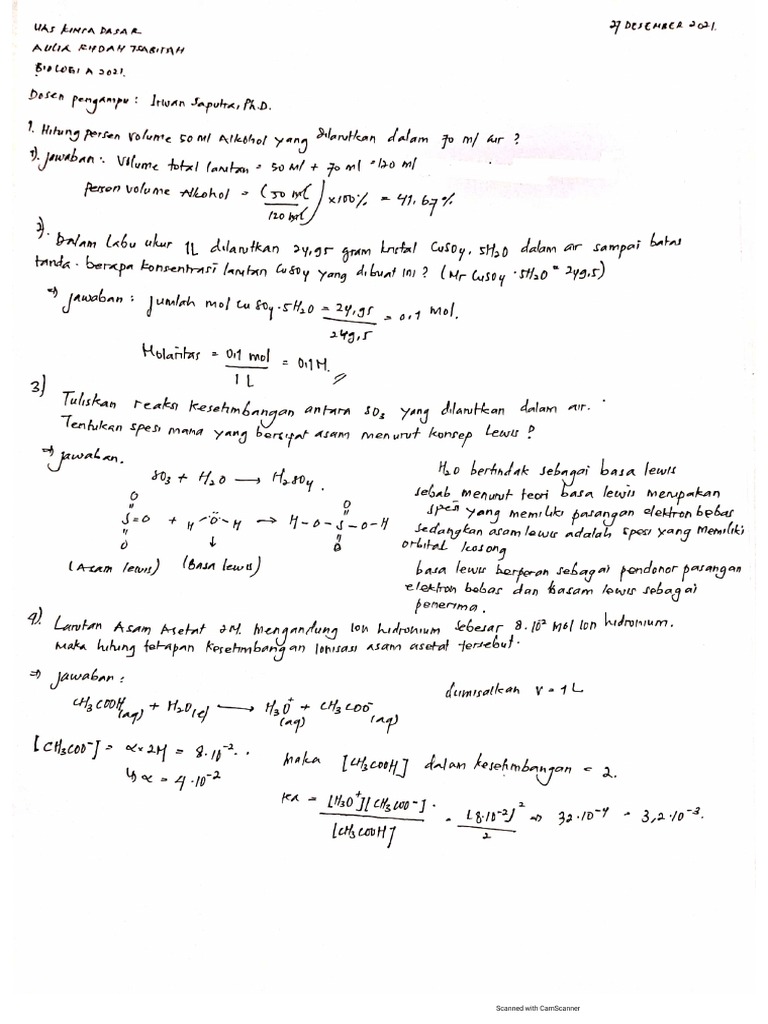 UAS KIMIA DASAR
27 DESEMBER 2021.
AULIA RIFDAH TSABITAH
BIOLOGI A 2021.
Dosen pengampu : Irwan Saputra, Ph.D.
1. Hitung persen volume 50 ml Alkohol yang dilarutkan dalam 70 ml air ?
1). jawaban : Volume total larutan = 50 ml + 70 ml = 120 ml
persen volume Alkohol = (50 ml / 120 ml) x 100% = 41.67%
2). Dalam labu ukur 1L dilarutkan 24,95 gram kristal CuSO4. 5H2O dalam air sampai batas
tanda. berapa konsentrasi larutan CuSO4 yang dibuat ini ? (Mr CuSO4 . 5H2O = 249,5)
⇒ jawaban : jumlah mol CuSO4 . 5H2O = 24,95 / 249,5 = 0,1 mol.
Molaritas = 0,1 mol / 1 L = 0,1 M.
3) Tuliskan reaksi kesetimbangan antara SO3 yang dilarutkan dalam air.
Tentukan spesi mana yang bersifat asam menurut konsep Lewis ?
⇒ jawaban.
SO3 + H2O → H2SO4.
O O
S=O + H-O-H → H-O-S-O-H
O O
(Asam lewis) (Basa lewis)
H2O bertindak sebagai basa lewis
sebab menurut teori basa lewis merupakan
spesi yang memiliki pasangan elektron bebas
sedangkan asam lewis adalah spesi yang memiliki
orbital kosong
basa lewis berperan sebagai pendonor pasangan
elektron bebas dan asam lewis sebagai
penerima.
4). Larutan Asam Asetat 2M. mengandung ion hidronium sebesar 8.10² mol ion hidronium.
maka hitung tetapan kesetimbangan ionisasi asam asetat tersebut.
⇒ jawaban :
dimisalkan V = 1 L
CH3COOH (aq) + H2O (l) → H3O⁺ (aq) + CH3COO⁻ (aq)
[CH3COO⁻] = α x 2M = 8.10⁻² .
↳ α = 4.10⁻²
maka [CH3COOH] dalam kesetimbangan = 2.
Ka = [H3O⁺][CH3COO⁻] / [CH3COOH] = [8.10⁻²]² / 2 ⇒ 32.10⁻⁴ = 3,2.10⁻³.
Scanned with CamScanner